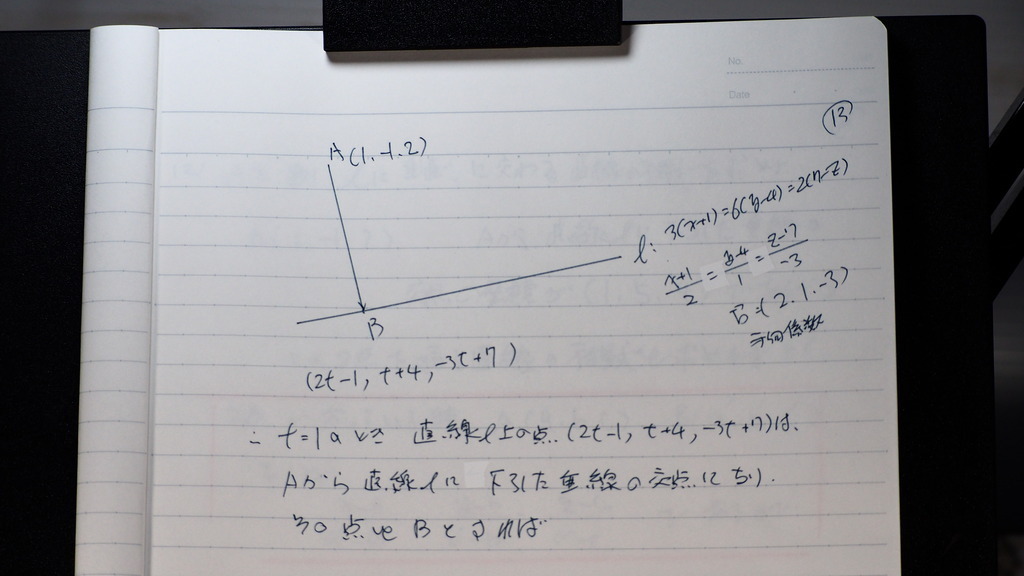 No.
Date
13
A(1, -1, 2)
l: 3(x+1)=6(y-4)=2(7-z)
x+1/2 = y-4/1 = z-7/-3
(2, 1, -3)
方向係数
B
(2t-1, t+4, -3t+7)
∴ t=1のとき 直線l上の点 (2t-1, t+4, -3t+7)は、
Aから直線lに下引いた垂線の交点になり、
その点をBとすれば